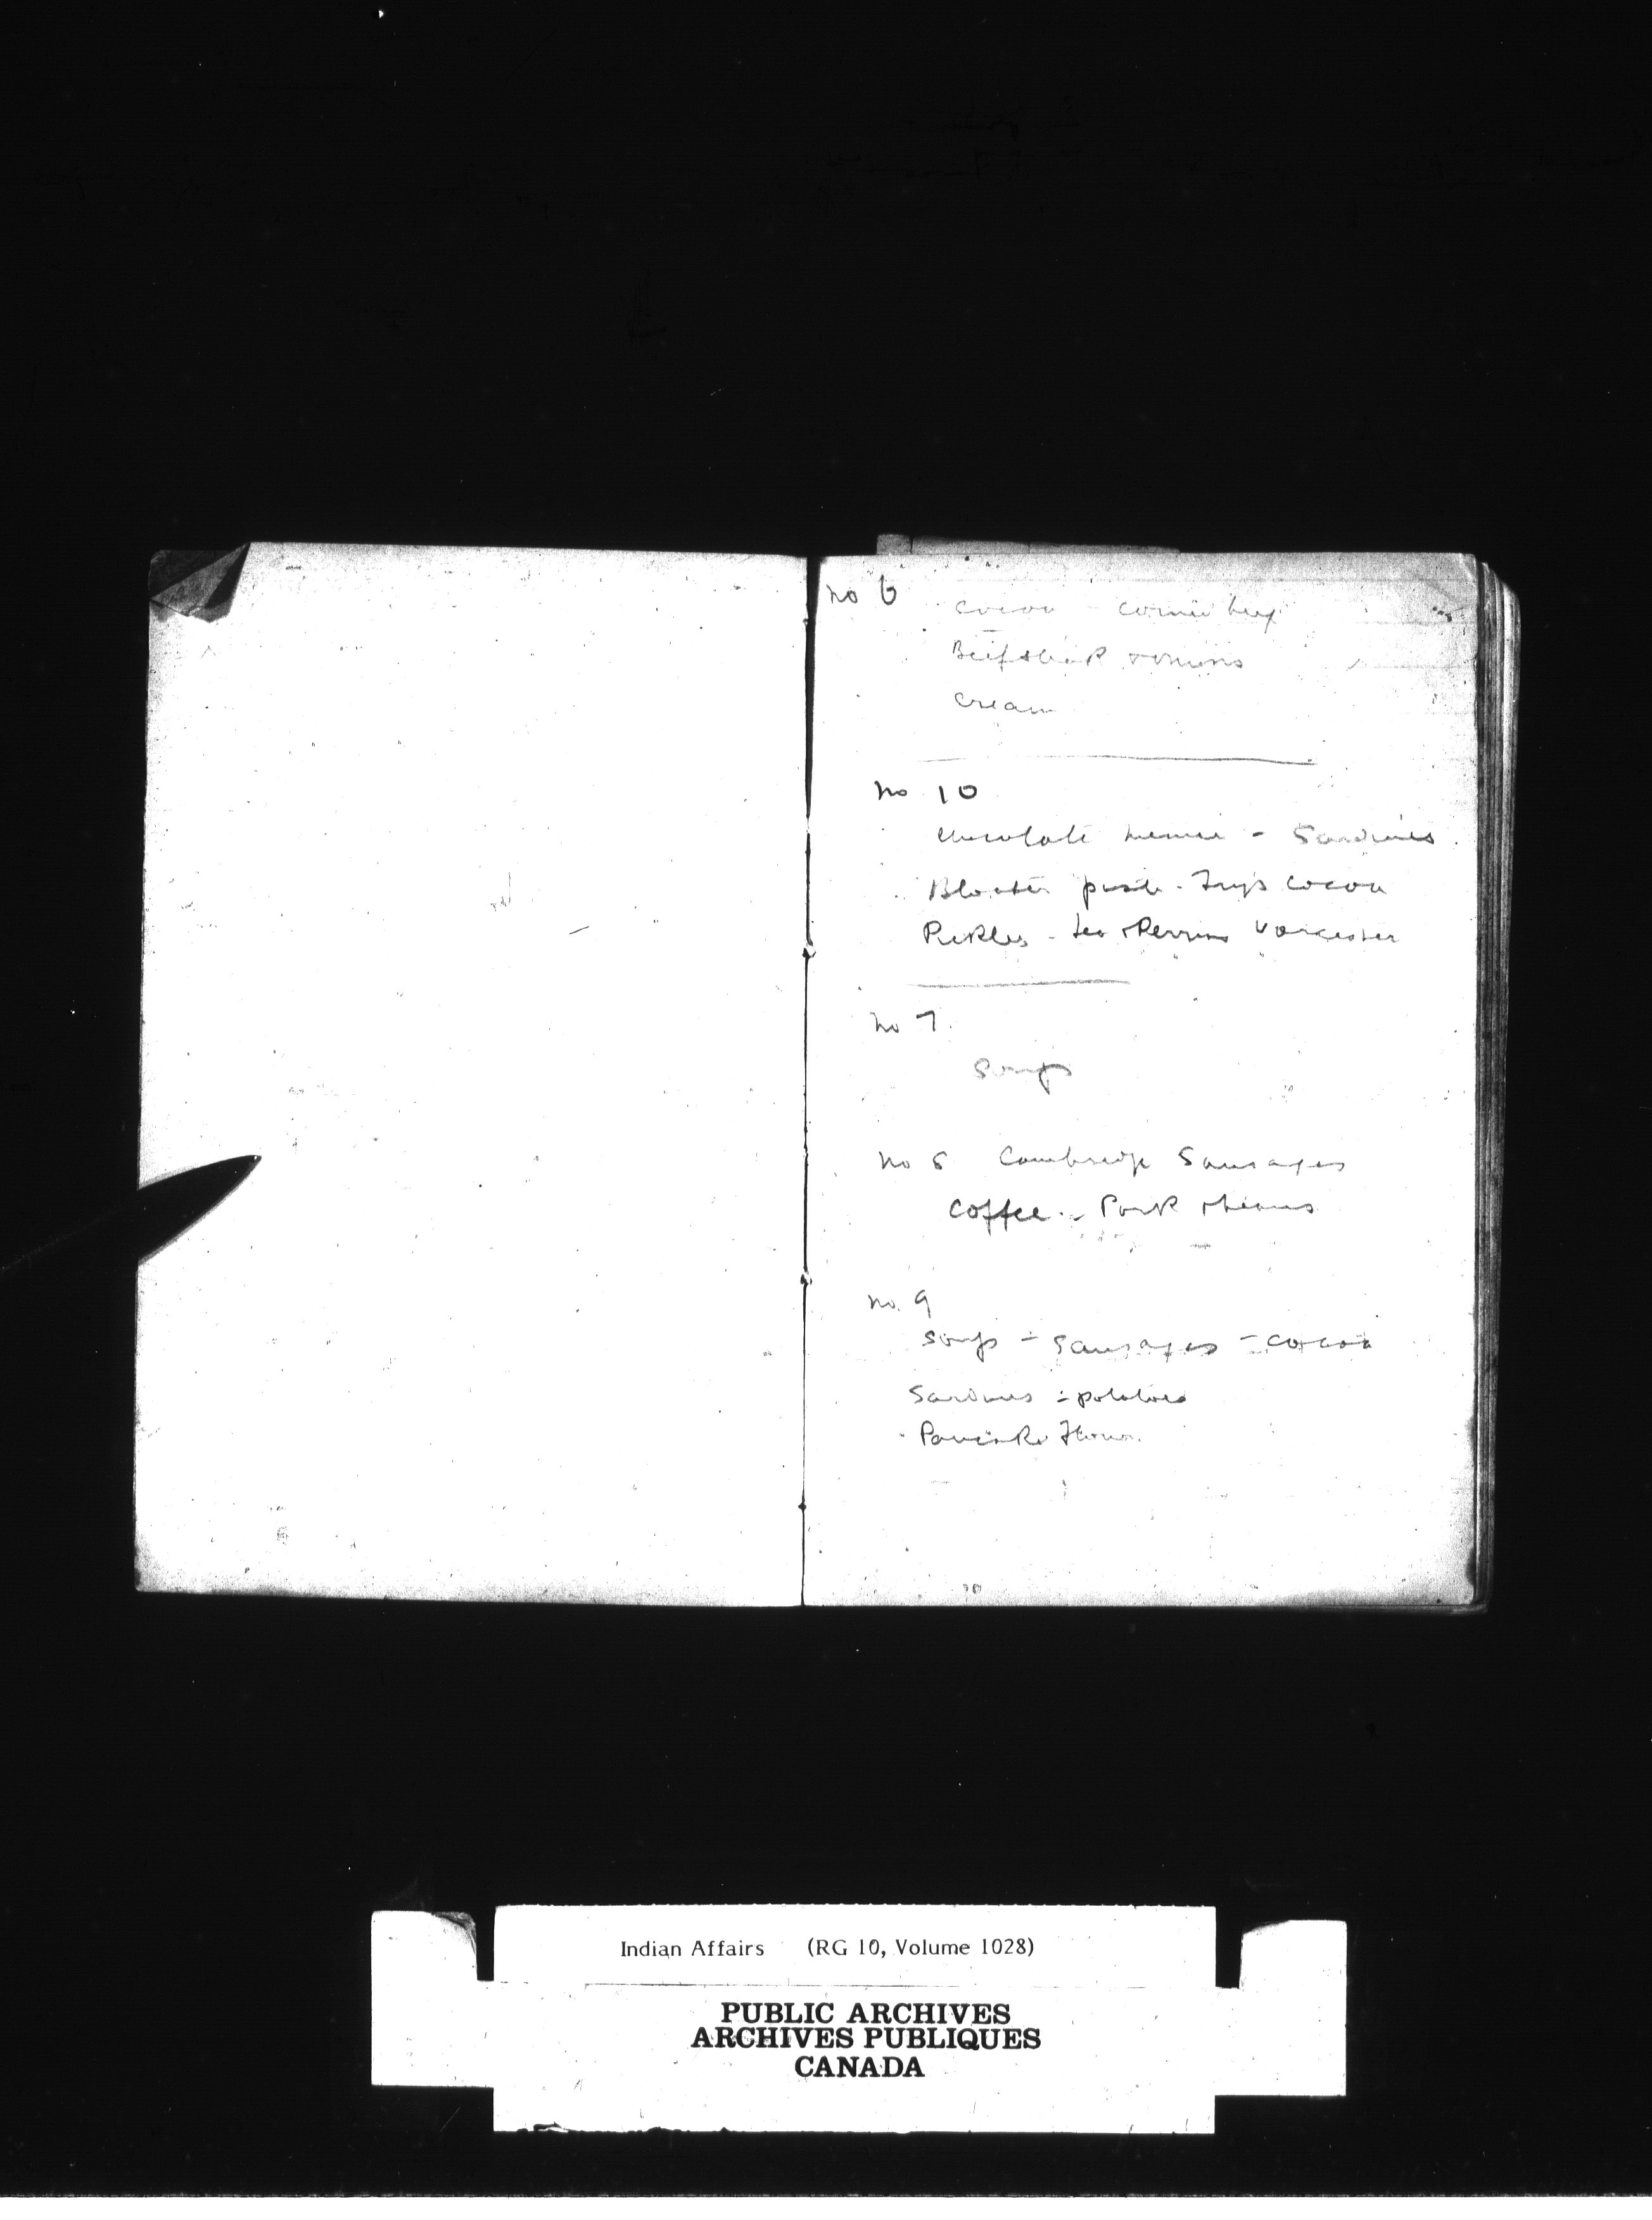 no 6
cocoa - corned beef
Beefsteak & onions
cream
no 10
chocolate menier - Sardines
Bloater paste - Frys cocoa
Pickles - Lea & Perrins Worcester
no 7
Soups
no 8 Cambridge Sausages
coffee - Pork & beans
no. 9
soups - sausages - cocoa
Sardines - potatoes
Pancake Flour
Indian Affairs (RG 10, Volume 1028)
PUBLIC ARCHIVES
ARCHIVES PUBLIQUES
CANADA